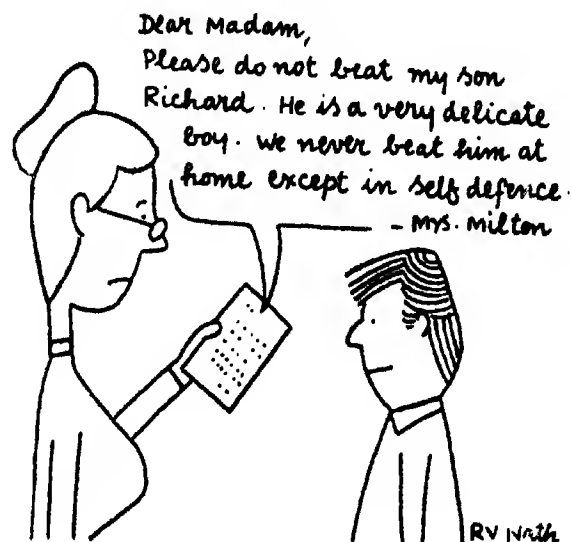 Dear Madam,
Please do not beat my son
Richard. He is a very delicate
boy. we never beat him at
home except in self defence.
- Mrs. Milton
RV Nath